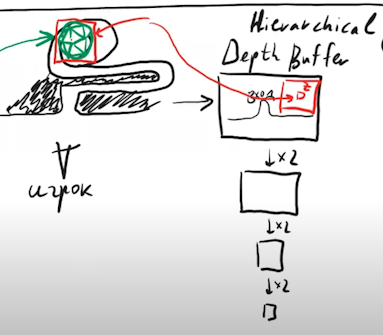 Hierarchical
Depth Buffer
↓×2
↓×2
↓×2
игрок